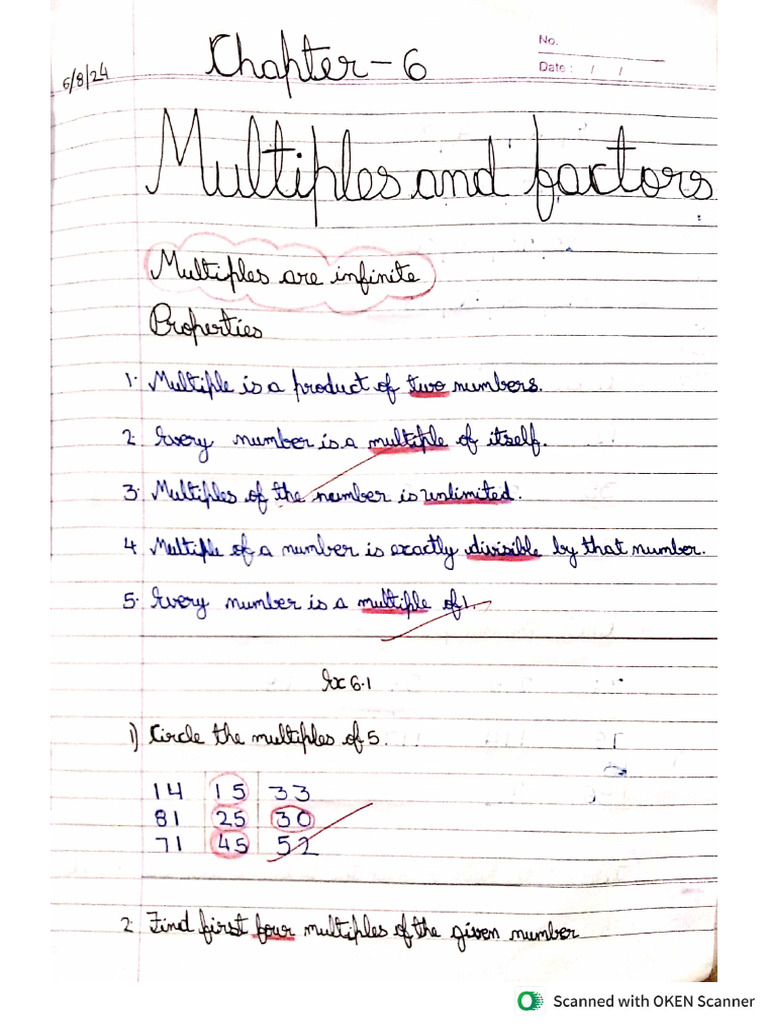 No.
Date : / /
6/8/24
Chapter-6
Multiples and factors
Multiples are infinite
Properties
1. Multiple is a product of two numbers.
2. Every number is a multiple of itself.
3. Multiples of the number is unlimited.
4 Multiple of a number is exactly divisible by that number.
5. Every number is a multiple of 1.
Ex 6.1
1) Circle the multiples of 5.
14 15 33
81 25 30
71 45 52
2 Find first four multiples of the given number
Scanned with OKEN Scanner